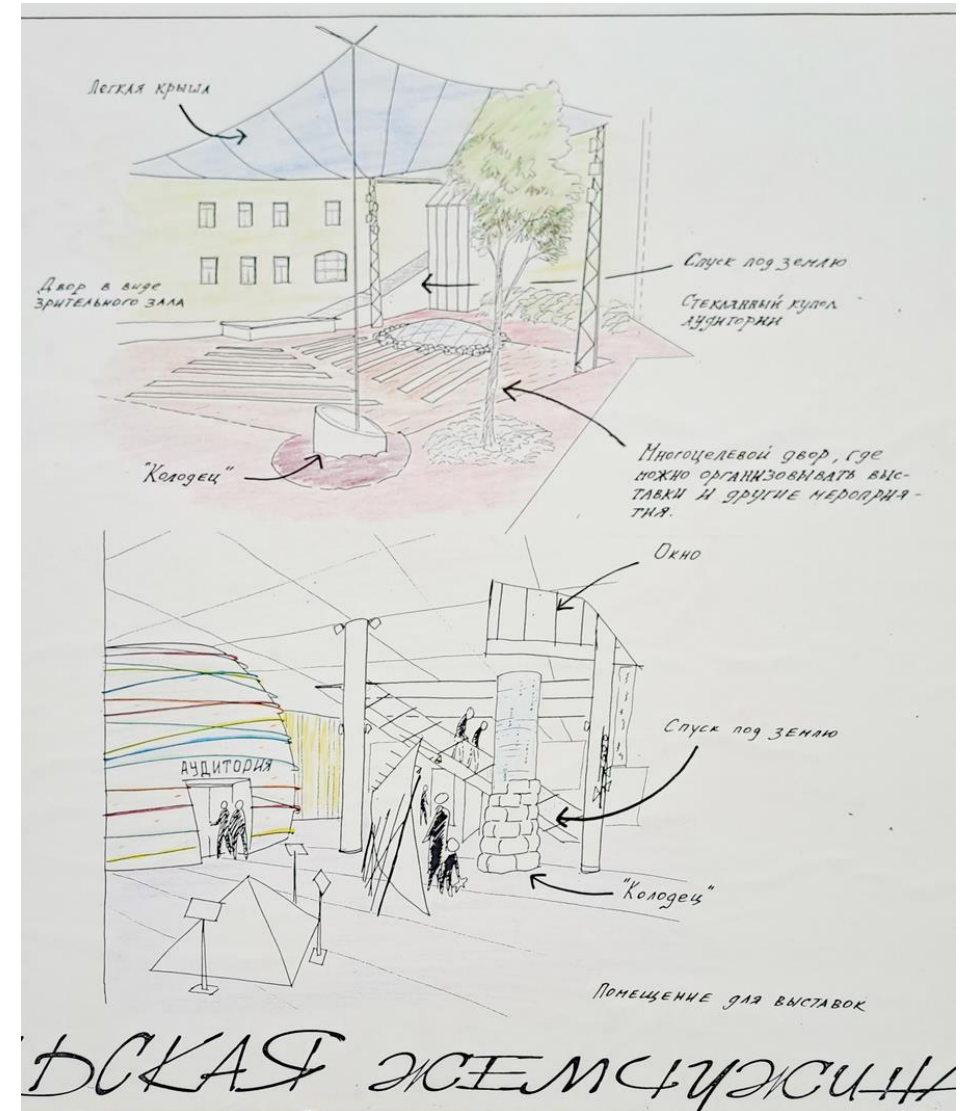 Легкая крыша
Двор в виде
зрительного зала
Спуск под землю
Стеклянный купол
аудитории
"Колодец"
Многоцелевой двор, где
можно организовывать выс-
тавки и другие мероприя-
тия.
Окно
АУДИТОРИЯ
Спуск под землю
"Колодец"
Помещение для выставок
ЬСКАЯ ЖЕМЧУЖИНА